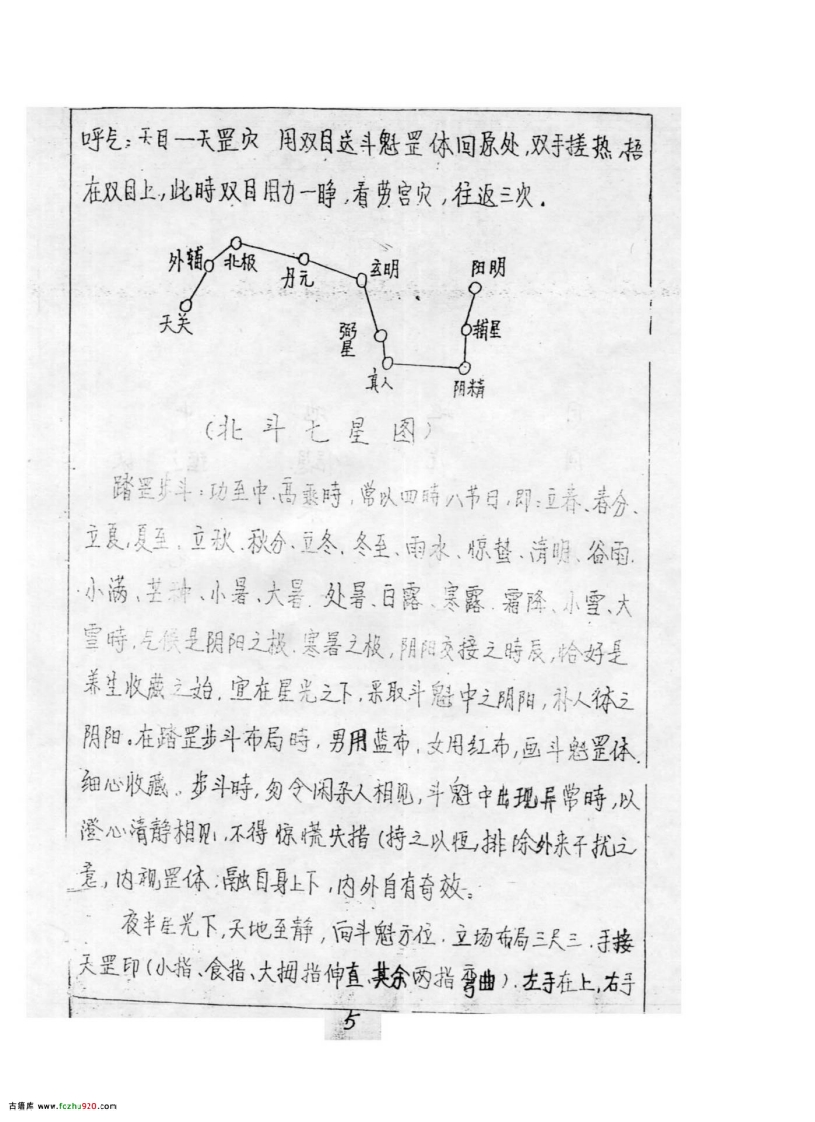 呼气：天目一天罡穴 用双目送斗魁罡体回原处,双手搓热,捂
在双目上,此時双目用力一睁,看劳宫穴,往返三次.
外辅 北极 丹元 玄明 阳明
天关 弼星 辅星
真人 阴精
(北斗七星图)
踏罡步斗：功至中.高乘時,常以四時八节日,即：立春、春分、
立夏,夏至、立秋.秋分.立冬.冬至、雨水、惊蛰、清明、谷雨.
小满、芒种、小暑、大暑.处暑、白露、寒露.霜降、小雪、大
雪時,气候是阴阳之极.寒暑之极,阴阳交接之時辰,恰好是
养生收藏之始.宜在星光之下,采取斗魁中之阴阳,补人体之
阴阳。在踏罡步斗布局時,男用蓝布,女用红布,画斗魁罡体.
细心收藏。步斗時,勿令闲杂人相见,斗魁中出现异常時,以
澄心清静相见,不得惊慌失措(持之以恒,排除外来干扰之
意,内视罡体,融自身上下,内外自有奇效。
夜半星光下,天地至静,向斗魁方位.立场布局三尺三.手接
天罡印(小指、食指、大拇指伸直、其余两指弯曲).左手在上,右手
5
古籍库 www.fozhu920.com